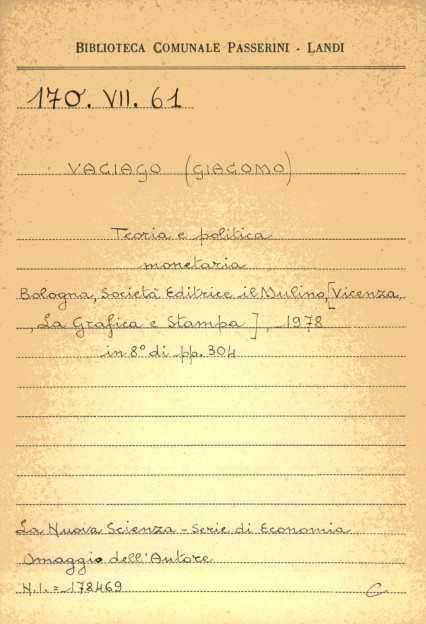 BIBLIOTECA COMUNALE PASSERINI - LANDI
170. VII. 61
VACIAGO (GIACOMO)
Teoria e politica
monetaria
Bologna, Società Editrice il Mulino, [Vicenza,
La Grafica e Stampa], 1978
in 8° di pp. 304
La Nuova Scienza - Serie di Economia
Omaggio dell'Autore
N.I. = 178469 C